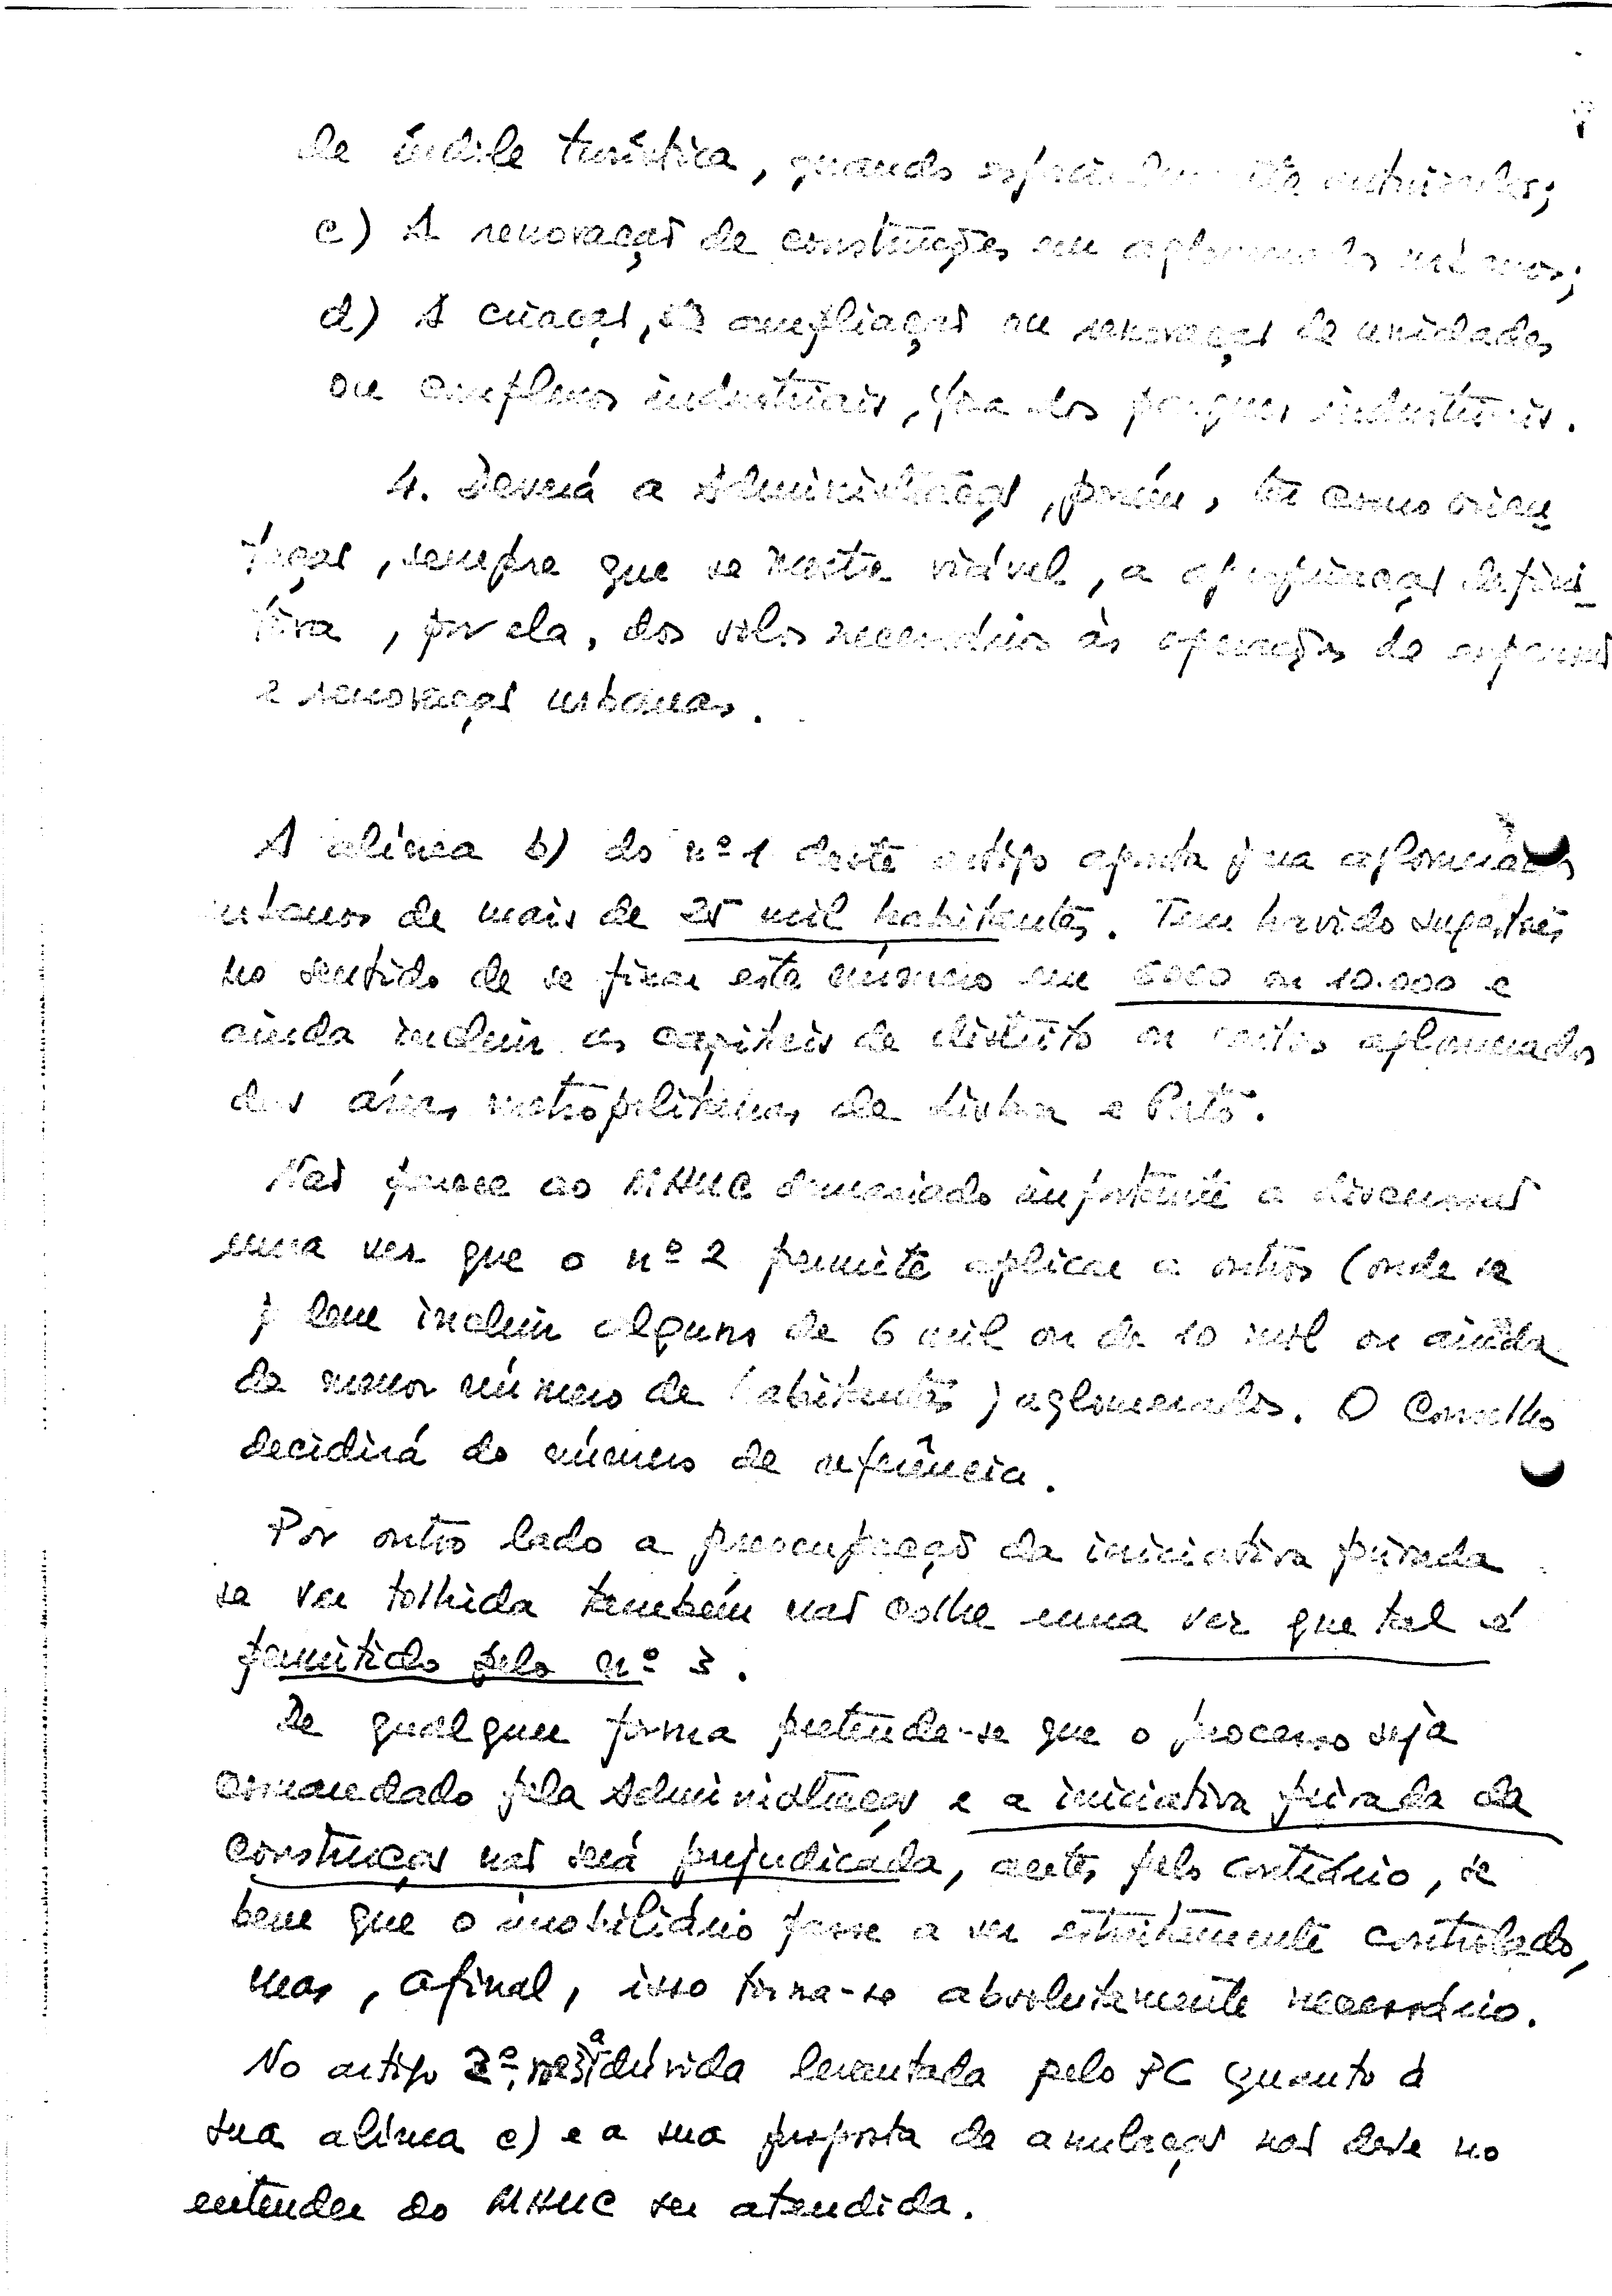 de índole turística, quando especialmente
c) A renovação de construções em aglomerados
d) A criação, ampliação ou renovação de unidades
ou complexos industriais, fora dos parques industriais.
4. Deverá a Administração, porém, ter como orien
tação, sempre que se mostre viável, a apropriação defini-
tiva, por ela, dos solos necessários às operações de expansão
e renovação urbanas.
A alínea b) do nº 1 deste artigo aponta para aglomerados
urbanos de mais de 25 mil habitantes. Tem havido sugestões
no sentido de se fixar este número em 5000 ou 10.000 e
ainda incluir as capitais de distrito ou certos aglomerados
das áreas metropolitanas de Lisboa e Porto.
Não parece ao MHUC demasiado importante a discussão
uma vez que o nº 2 permite aplicar a outros (onde se
podem incluir alguns de 6 mil ou de 10 mil ou ainda
de menor número de habitantes) aglomerados. O Conselho
decidirá do número de referência.
Por outro lado a preocupação da iniciativa privada
se ver tolhida também não colhe uma vez que tal é
permitido pelo nº 3.
De qualquer forma pretende-se que o processo seja
comandado pela Administração e a iniciativa privada da
construção não será prejudicada, antes pelo contrário, se
bem que o imobiliário passe a ser estritamente controlado,
mas, afinal, isso torna-se absolutamente necessário.
No artigo 2º, a dúvida levantada pelo PC quanto à
sua alínea c) e a sua proposta de anulação não deve no
entender do MHUC ser atendida.